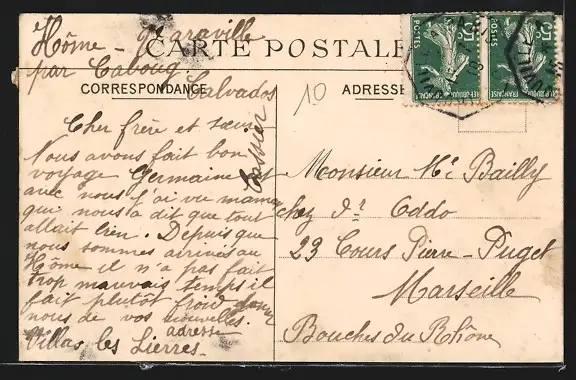 Hôme - Varaville
CARTE POSTALE
par Cabourg
Calvados
CORRESPONDANCE
ADRESSE
10
Cher frère et sœur
Nous avons fait bon
voyage Germaine est
avec nous j'ai vu maman
qui nous a dit que tout
allait bien. Depuis que
nous sommes arrivés au
Hôme il n'a pas fait
trop mauvais temps il
fait plutôt froid donner
nous de vos nouvelles.
adresse
Villas les Lierres.
Monsieur Bailly
chez Dr Oddo
23 Cours Pierre-Puget
Marseille
Bouches du Rhône
5c
POSTES
REPUBLIQUE FRANÇAISE
5c
POSTES
REPUBLIQUE FRANÇAISE